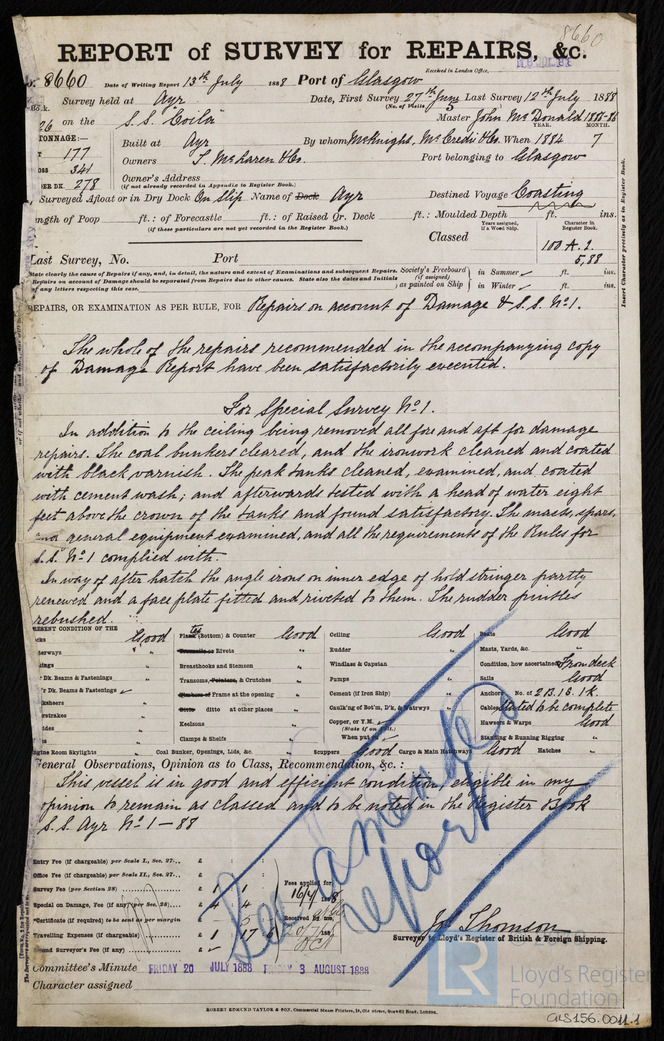 8660
REPORT of SURVEY for REPAIRS, &c.
Received in London Office,
No. 8660 Date of Writing Report 13th July 1888 Port of Glasgow
Survey held at Ayr Date, First Survey 27th June Last Survey 12th July 1888
(No. of Visits
26 on the S.S. "Coila" Master John McDonald
TONNAGE:— YEAR. MONTH.
177 Built at Ayr By whom McKnight, McCredie & Co. When 1884 7
341 Owners T. McLaren & Co. Port belonging to Glasgow
278 Owner's Address
(if not already recorded in Appendix to Register Book.)
Surveyed Afloat or in Dry Dock On slip Name of Dock Ayr Destined Voyage Coasting
ength of Poop ft.: of Forecastle ft.: of Raised Qr. Deck ft.: Moulded Depth ft. ins.
(if these particulars are not yet recorded in the Register Book.)
Years assigned, if a Wood Ship. Character in Register Book.
Classed 100 A.1.
5,88
Last Survey, No. Port
State clearly the cause of Repairs if any, and, in detail, the nature and extent of Examinations and subsequent Repairs.
Repairs on account of Damage should be separated from Repairs due to other causes. State also the dates and Initials
of any letters respecting this case.
Society's Freeboard (if assigned) as painted on Ship
in Summer ft. ins.
in Winter ft. ins.
Insert Character precisely as in Register Book.
REPAIRS, OR EXAMINATION AS PER RULE, FOR Repairs on account of Damage & S.S. No 1.
The whole of the repairs recommended in the accompanying copy
of Damage Report have been satisfactorily executed.
For Special Survey No 1.
In addition to the ceiling being removed all fore and aft for damage
repairs. The coal bunkers cleared, and the ironwork cleaned and coated
with black varnish. The peak tanks cleaned, examined, and coated
with cement wash; and afterwards tested with a head of water eight
feet above the crown of the tanks and found satisfactory. The masts, spars,
and general equipment examined, and all the requirements of the Rules for
S.S. No 1 complied with.
In way of after hatch the angle irons on inner edge of hold stringer partly
renewed and a face plate fitted and riveted to them. The rudder pintles
rebushed.
PRESENT CONDITION OF THE
cks Good Plates (Bottom) & Counter Good Ceiling Good Boats Good
terways " Rivets " Rudder " Masts, Yards, &c. "
ings " Breasthooks and Stemson " Windlass & Capstan " Condition, how ascertained From deck
r Dk. Beams & Fastenings " Transoms, Pointers, & Crutches " Pumps " Sails Good
r Dk. Beams & Fastenings Timbers or Frame at the opening " Cement (if Iron Ship) " Anchors No. of 2B. 1S. 1K.
sheers " Ditto ditto at other places " Caulk'g of Bot'm, D'k, & Watrways " Cables Stated to be complete
strakes " Keelsons " Copper, or Y.M. Hawsers & Warps Good
ides " Clamps & Shelfs " (State if on felt.) Standing & Running Rigging "
When put on
Engine Room Skylights " Coal Bunker, Openings, Lids, &c. " Scuppers Good Cargo & Main Hatchways Good Hatches "
General Observations, Opinion as to Class, Recommendation, &c.:
This vessel is in good and efficient condition, eligible in my
opinion to remain as classed and to be noted in the Register Book
S.S. Ayr No 1 – 88
See amended report
Entry Fee (if chargeable) per Scale I., Sec. 27...
Office Fee (if chargeable) per Scale II., Sec. 27...
Survey Fee (per Section 28) £ 1 1
Special on Damage, Fee (if any) (per Sec. 28) £ 4 4
*Certificate (if required) to be sent as per margin
Travelling Expenses (if chargeable) £ 1 17 6
Second Surveyor's Fee (if any) £
Fees applied for
16/7/1888
Received by me,
Jas Thomson
Surveyor to Lloyd's Register of British & Foreign Shipping.
Committee's Minute FRIDAY 20 JULY 1888 FRIDAY 3 AUGUST 1888
Character assigned
Lloyd's Register
Foundation
LR
ROBERT EDMUND TAYLOR & SON, Commercial Steam Printers, 19, Old Street, Goswell Road, London.